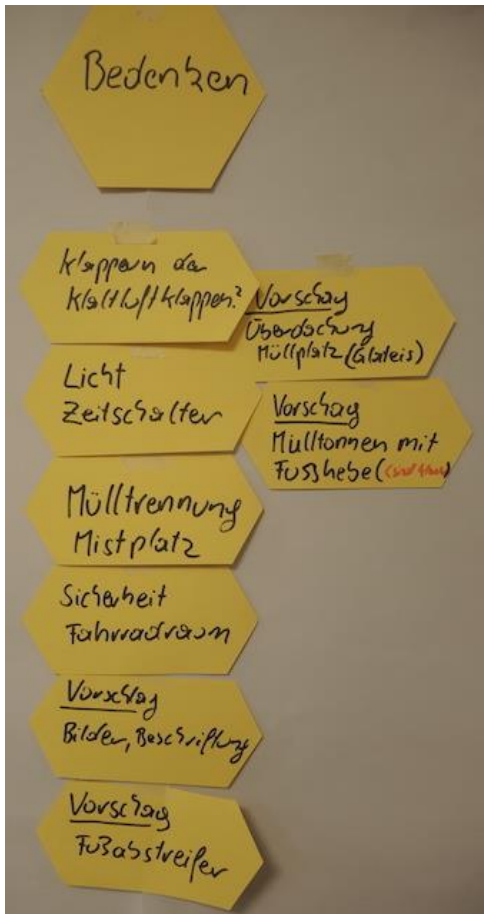 Bedenken
Klappern der
Kaltluftklappen?
Licht
Zeitschalter
Mülltrennung
Mistplatz
Sicherheit
Fahrradraum
Vorschlag
Bilder, Beschriftung
Vorschlag
Fußabstreifer
Vorschag
Überdachung
Müllplatz (Glateis)
Vorschag
Mülltonnen mit
Fusshebe(